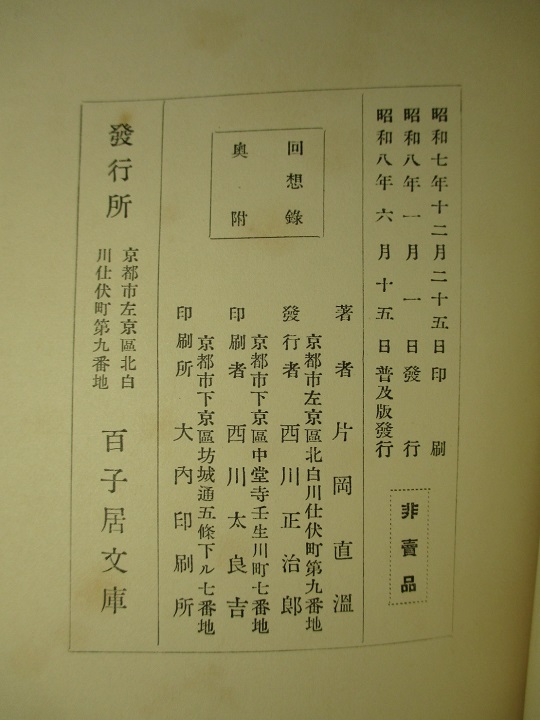 昭和七年十二月二十五日印刷
昭和八年一月一日發行
昭和八年六月十五日普及版發行
非賣品
回想錄
奧附
著者 片岡直溫
京都市左京區北白川仕伏町第九番地
發行者 西川正治郎
京都市下京區中堂寺壬生川町七番地
印刷者 西川太良吉
京都市下京區坊城通五條下ル七番地
印刷所 大內印刷所
發行所
京都市左京區北白
川仕伏町第九番地
百子居文庫